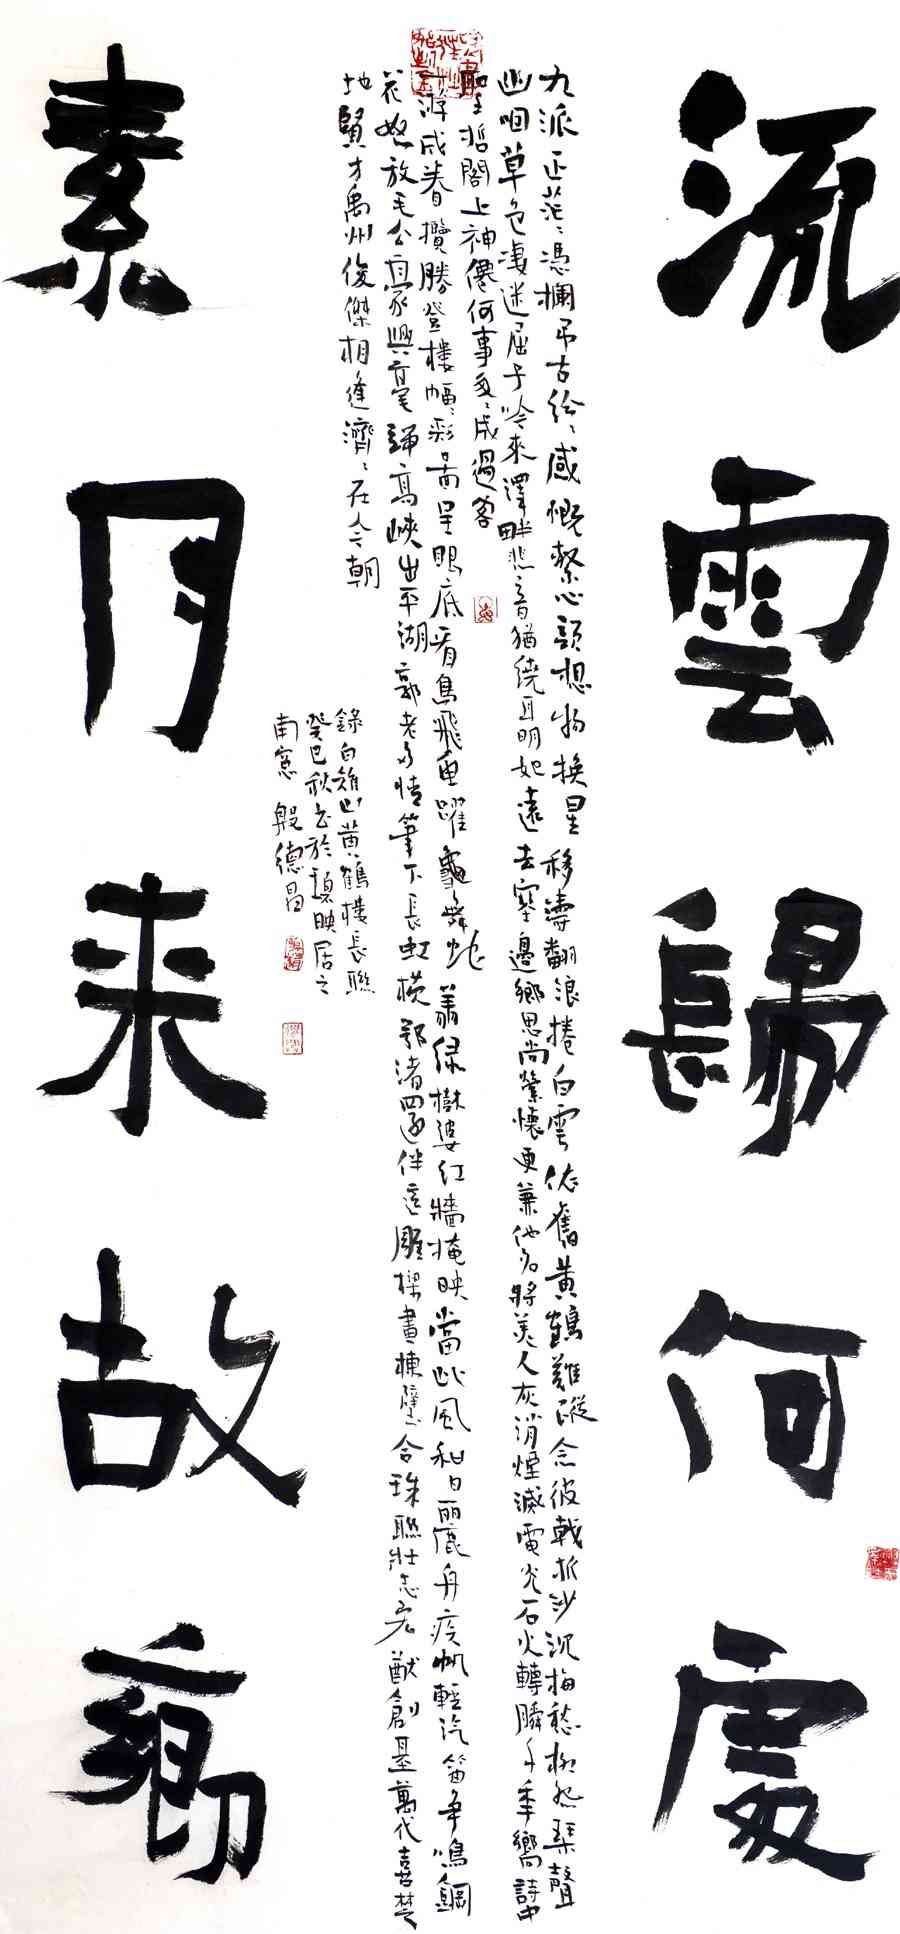 流雲歸何處
九派正茫〻憑欄吊古紛〻感慨繫心頭想物換星移濤翻浪捲白雲依舊黃鶴難蹤念彼戟折沙沉梅愁柳怨琴聲
幽咽草色凄迷屈子吟來澤畔悲音猶繞耳明妃遠去塞邊鄉思尚縈懷更兼他名將美人灰消煙滅電光石火轉瞬千年嚮詩中
聖哲閣上神僊何事匆〻成過客
游成眷攬勝登樓幅〻彩畵呈眼底看鳥飛魚躍龜舞蛇翥綠樹婆紅牆掩映當此風和日麗舟疾帆輕汽笛爭鳴鋼
花怒放毛公豪興高峽出平湖郭老多情筆下長虹橫鄂渚還伴這雕樑畫棟璧合珠聯壯志宏猷創基萬代喜楚
地賢才禹州俊傑相逢濟〻在今朝
錄白雉山黃鶴樓長聯
癸巳秋書於映居之
南窓 殷德昌
素月來故鄉